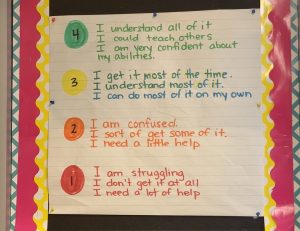 4
I understand all of it
I could teach others
I am very confident about
my abilities.
3
I get it most of the time.
I understand most of it.
I can do most of it on my own
2
I am confused.
I sort of get some of it.
I need a little help
1
I am struggling
I don't get it at all
I need a lot of help